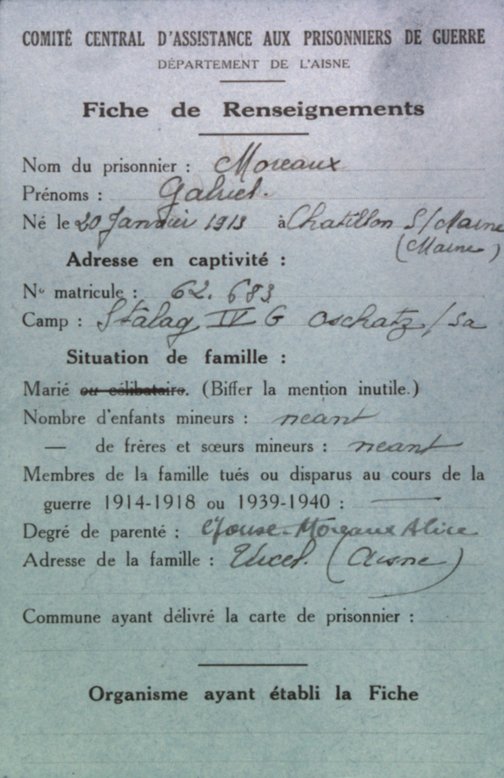 COMITÉ CENTRAL D'ASSISTANCE AUX PRISONNIERS DE GUERRE
DÉPARTEMENT DE L'AISNE
Fiche de Renseignements
Nom du prisonnier : Moreaux
Prénoms : Gabriel.
Né le 20 Janvier 1913 à Chatillon S/Marne
(Marne)
Adresse en captivité :
No matricule : 62.683
Camp : Stalag IV G Oschatz/Sa
Situation de famille :
Marié ou célibataire. (Biffer la mention inutile.)
Nombre d'enfants mineurs : neant
— de frères et sœurs mineurs : neant
Membres de la famille tués ou disparus au cours de la
guerre 1914-1918 ou 1939-1940 : —
Degré de parenté : Epouse Moreaux Alice
Adresse de la famille : Urcel. (Aisne)
Commune ayant délivré la carte de prisonnier :
Organisme ayant établi la Fiche